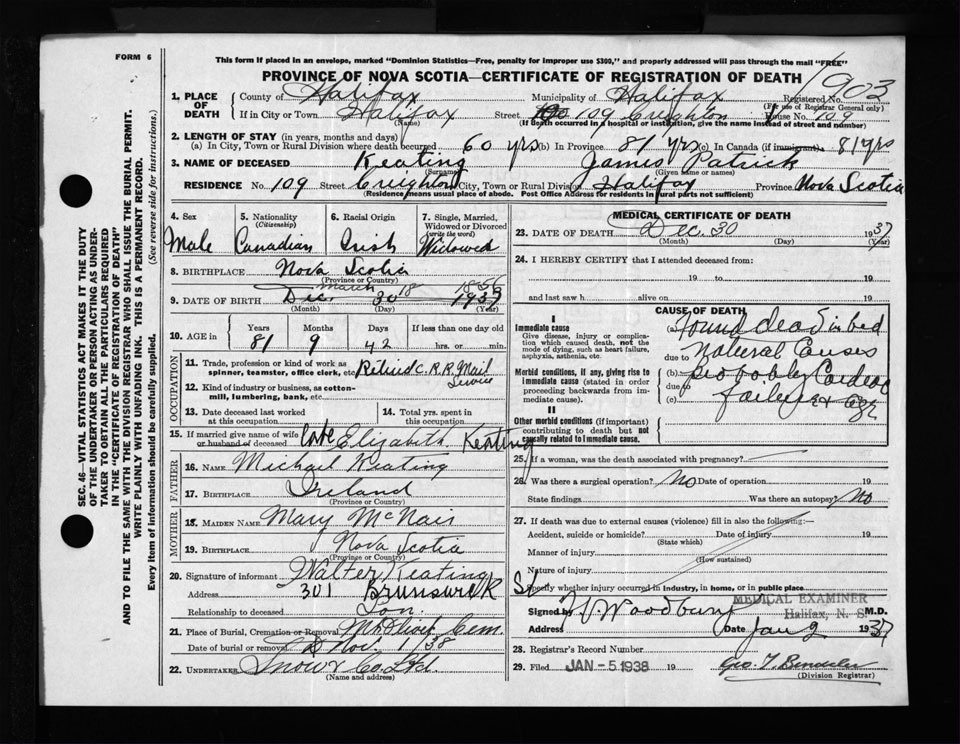 FORM 6
This form if placed in an envelope, marked "Dominion Statistics—Free, penalty for improper use $300," and properly addressed will pass through the mail "FREE"
PROVINCE OF NOVA SCOTIA—CERTIFICATE OF REGISTRATION OF DEATH
1903
1. PLACE OF DEATH
County of Halifax Municipality of Halifax Registered No.
(For use of Registrar General only)
If in City or Town Halifax Street 109 Creighton House No. 109
(Name) (If death occurred in a hospital or institution, give the name instead of street and number)
2. LENGTH OF STAY (in years, months and days)
(a) In City, Town or Rural Division where death occurred 60 yrs (b) In Province 81 yrs (c) In Canada (if immigrant) 81 yrs
3. NAME OF DECEASED Keating James Patrick
(Surname) (Given name or names)
RESIDENCE No. 109 Street Creighton City, Town or Rural Division Halifax Province Nova Scotia
(Residence means usual place of abode. Post Office Address for residents in rural parts not sufficient)
4. Sex 5. Nationality (Citizenship) 6. Racial Origin 7. Single, Married, Widowed or Divorced (write the word)
Male Canadian Irish Widowed
8. BIRTHPLACE Nova Scotia
(Province or Country)
March 18 1856
9. DATE OF BIRTH Dec. 30 1937
(Month) (Day) (Year)
10. AGE in Years Months Days If less than one day old
81 9 42 hrs. or min.
OCCUPATION
11. Trade, profession or kind of work as spinner, teamster, office clerk, etc. Retired C.R.R. Mail Service
12. Kind of industry or business, as cotton-mill, lumbering, bank, etc.
13. Date deceased last worked at this occupation
14. Total yrs. spent in this occupation
15. If married give name of wife or husband of deceased late Elizabeth Keating
FATHER
16. NAME Michael Keating
17. BIRTHPLACE Ireland
(Province or Country)
MOTHER
18. MAIDEN NAME Mary McNair
19. BIRTHPLACE Nova Scotia
(Province or Country)
20. Signature of informant Walter Keating
Address 301 Brunswick
Relationship to deceased Son.
21. Place of Burial, Cremation or Removal Mt Olivet Cem.
Date of burial or removal 1/38
22. UNDERTAKER Snow & Co. Ltd.
(Name and address)
MEDICAL CERTIFICATE OF DEATH
23. DATE OF DEATH Dec. 30 1937
(Month) (Day) (Year)
24. I HEREBY CERTIFY that I attended deceased from:
19 to 19
and last saw h alive on 19
CAUSE OF DEATH
I
Immediate cause
Give disease, injury or complication which caused death, not the mode of dying, such as heart failure, asphyxia, asthenia, etc.
(a) found dead in bed
due to Natural Causes
Morbid conditions, if any, giving rise to immediate cause (stated in order proceeding backwards from immediate cause).
(b) probably Cardiac
due to
(c) failure
II
Other morbid conditions (if important) contributing to death but not causally related to immediate cause.
25. If a woman, was the death associated with pregnancy?
26. Was there a surgical operation? No Date of operation 19
State findings Was there an autopsy? No
27. If death was due to external causes (violence) fill in also the following:—
Accident, suicide or homicide? Date of injury 19
(State which)
Manner of injury
(How sustained)
Nature of injury
Specify whether injury occurred in industry, in home, or in public place
MEDICAL EXAMINER
Halifax, N. S.
Signed by Woodbury M.D.
Address Date Jan 2 1937
28. Registrar's Record Number
29. Filed JAN -5 1938 19
(Division Registrar)
SEC. 46—VITAL STATISTICS ACT MAKES IT THE DUTY
OF THE UNDERTAKER OR PERSON ACTING AS UNDER-
TAKER TO OBTAIN ALL THE PARTICULARS REQUIRED
IN THE "CERTIFICATE OF REGISTRATION OF DEATH"
AND TO FILE THE SAME WITH THE DIVISION REGISTRAR WHO SHALL ISSUE THE BURIAL PERMIT.
WRITE PLAINLY WITH UNFADING INK. THIS IS A PERMANENT RECORD.
Every item of information should be carefully supplied. (See reverse side for instructions.)